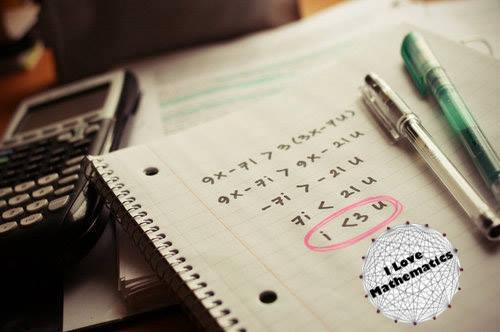 9x-7i > 3(3x-7u)
9x-7i > 9x-21u
-7i > -21u
7i < 21u
i <3 u
I Love
Mathematics